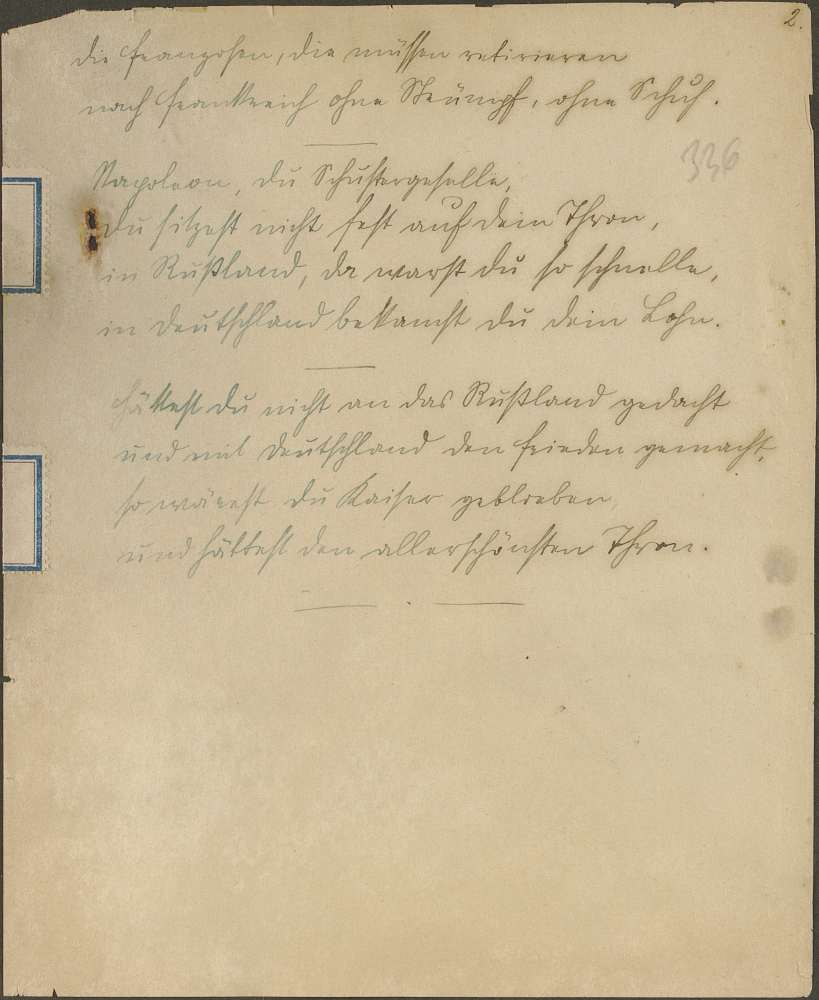 2.
die Franzosen, die müssen retirieren
nach Frankreich ohne Strümpf, ohne Schuh.
336
Napoleon, du Schustergeselle,
du sitzest nicht fest auf dein Thron,
in Rußland, da warst du so schnelle,
in Deutschland bekamst du dein Lohn.
Hättest du nicht an das Rußland gedacht
und mit Deutschland den Frieden gemacht,
so wärest du Kaiser geblieben,
und hättest den allerschönsten Thron.